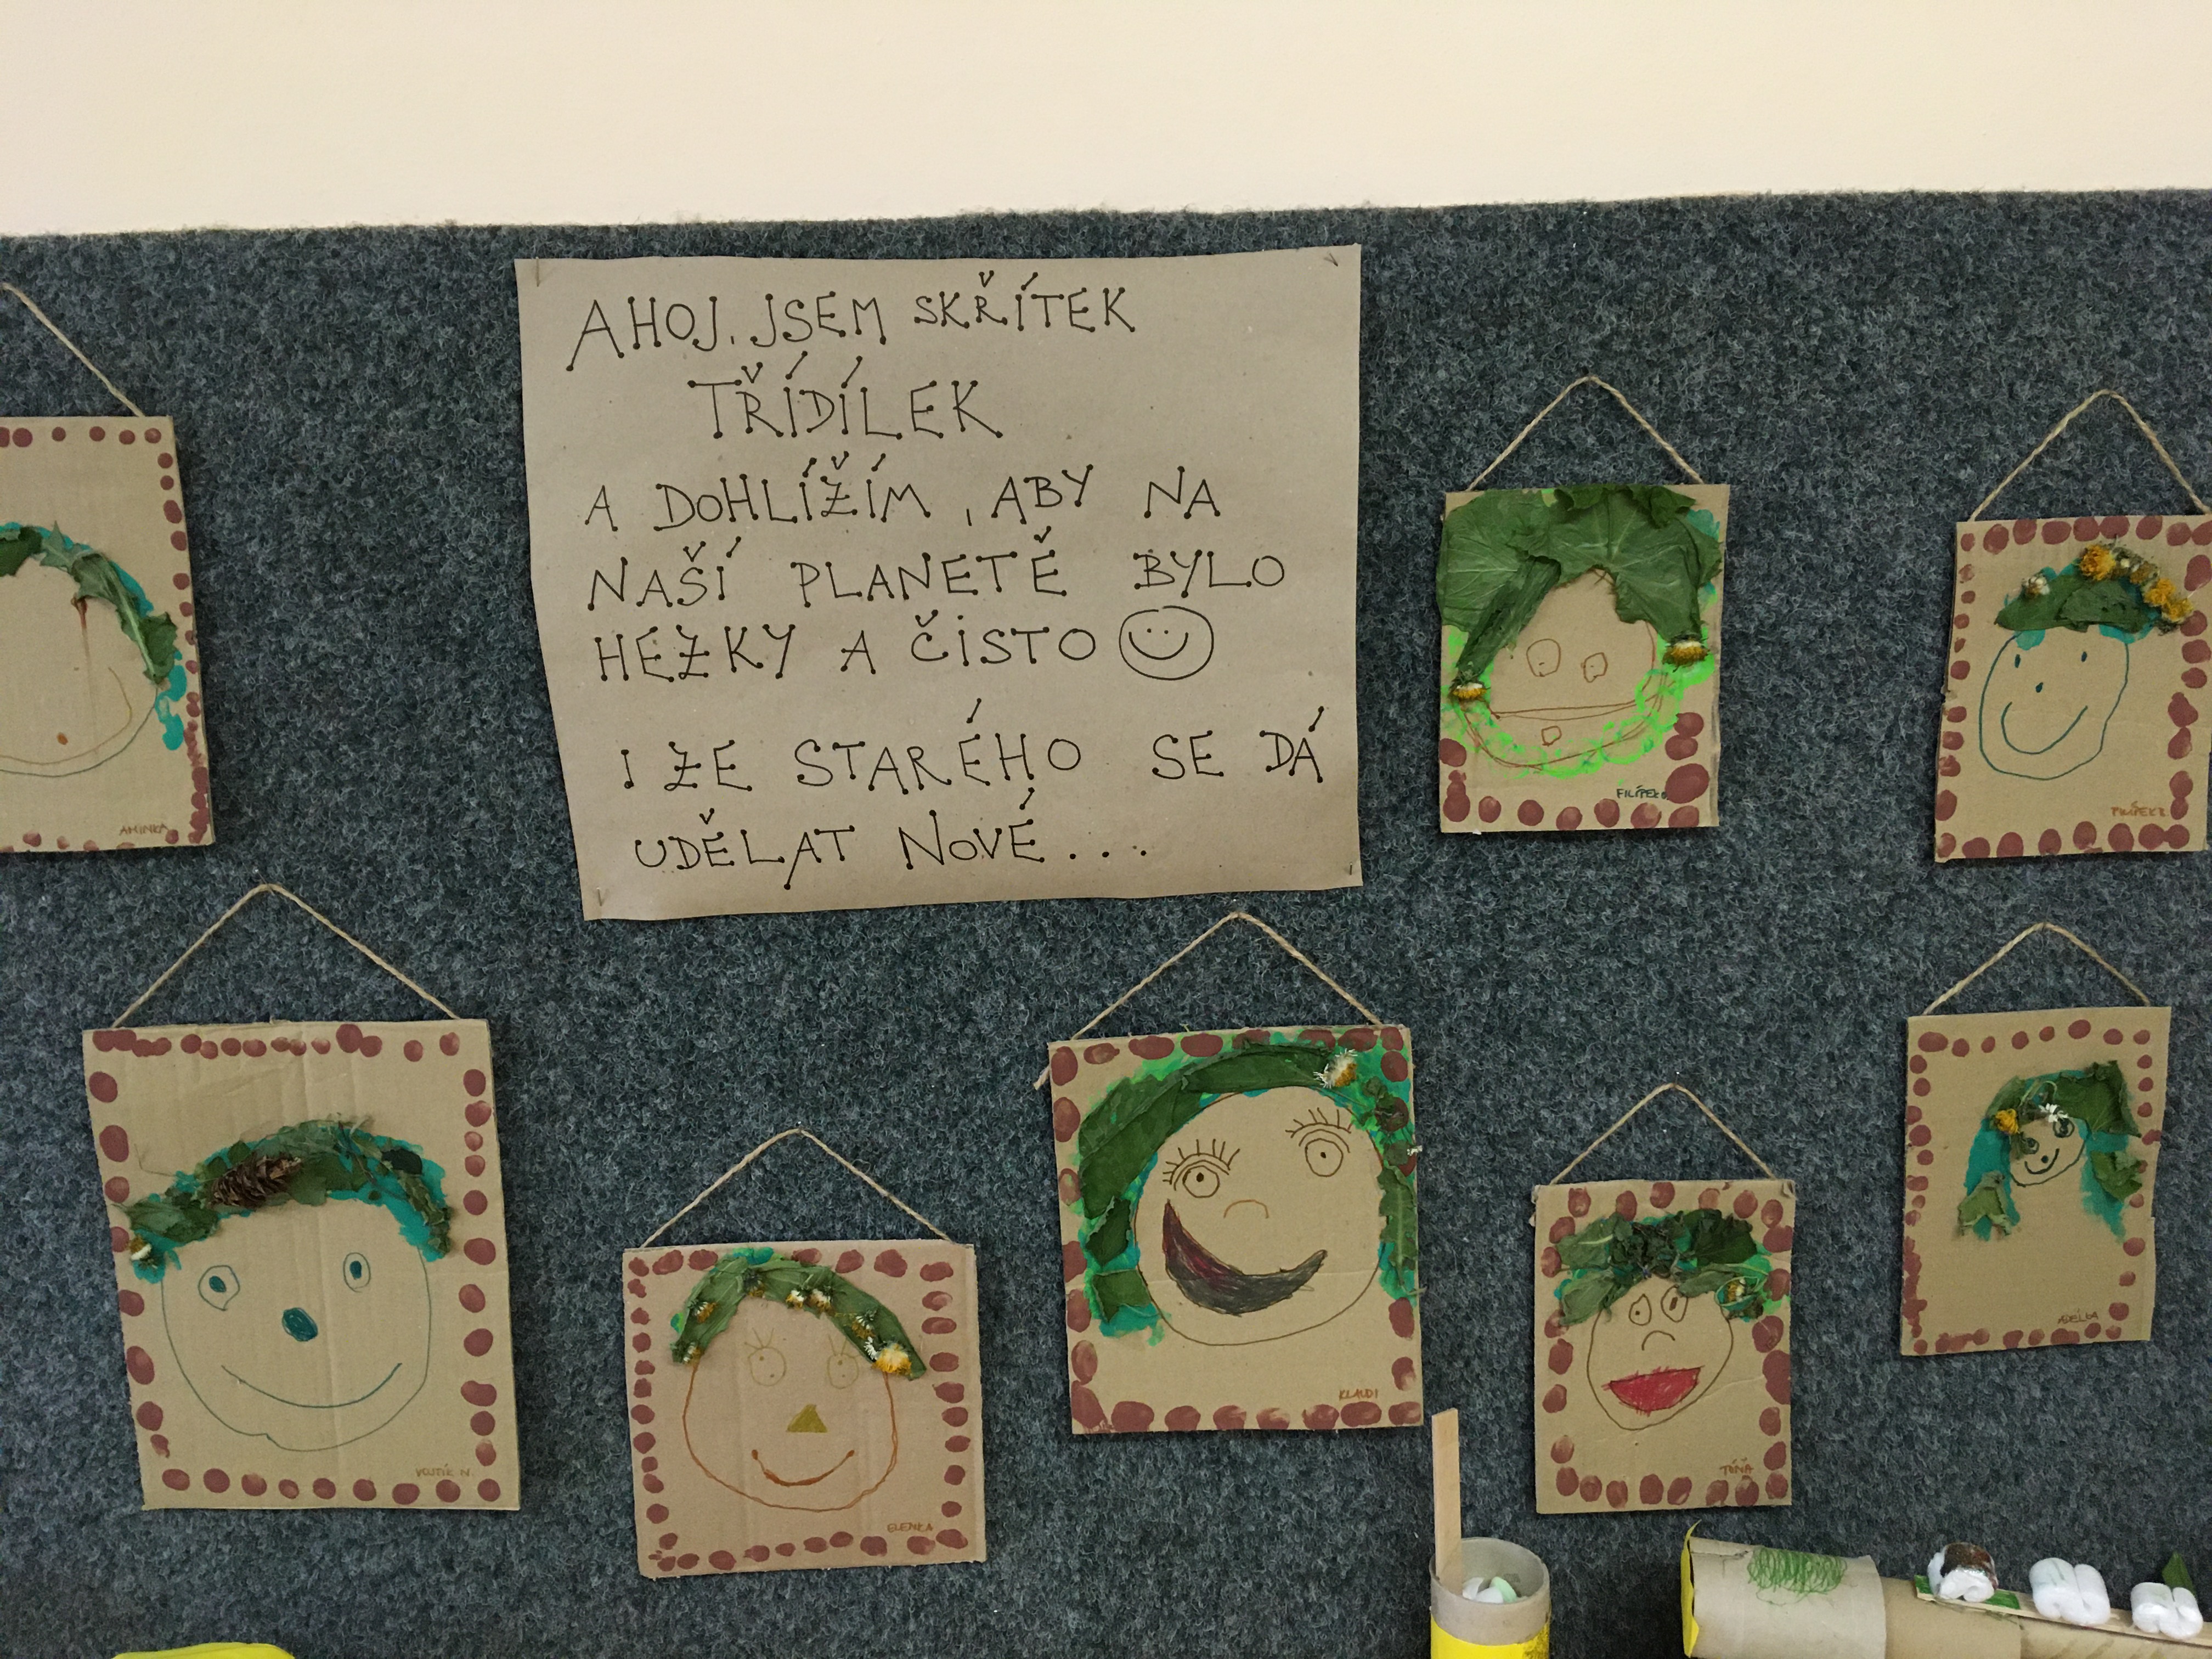 AHOJ, JSEM SKŘÍTEK
TŘÍDÍLEK
A DOHLÍŽÍM, ABY NA
NAŠÍ PLANETĚ BYLO
HEZKY A ČISTO
I ZE STARÉHO SE DÁ
UDĚLAT NOVÉ...
AMINKA
FILÍPEK
VOJTÍK N.
ELENKA
KLAUDI
TÓŇA
ADÉLKA